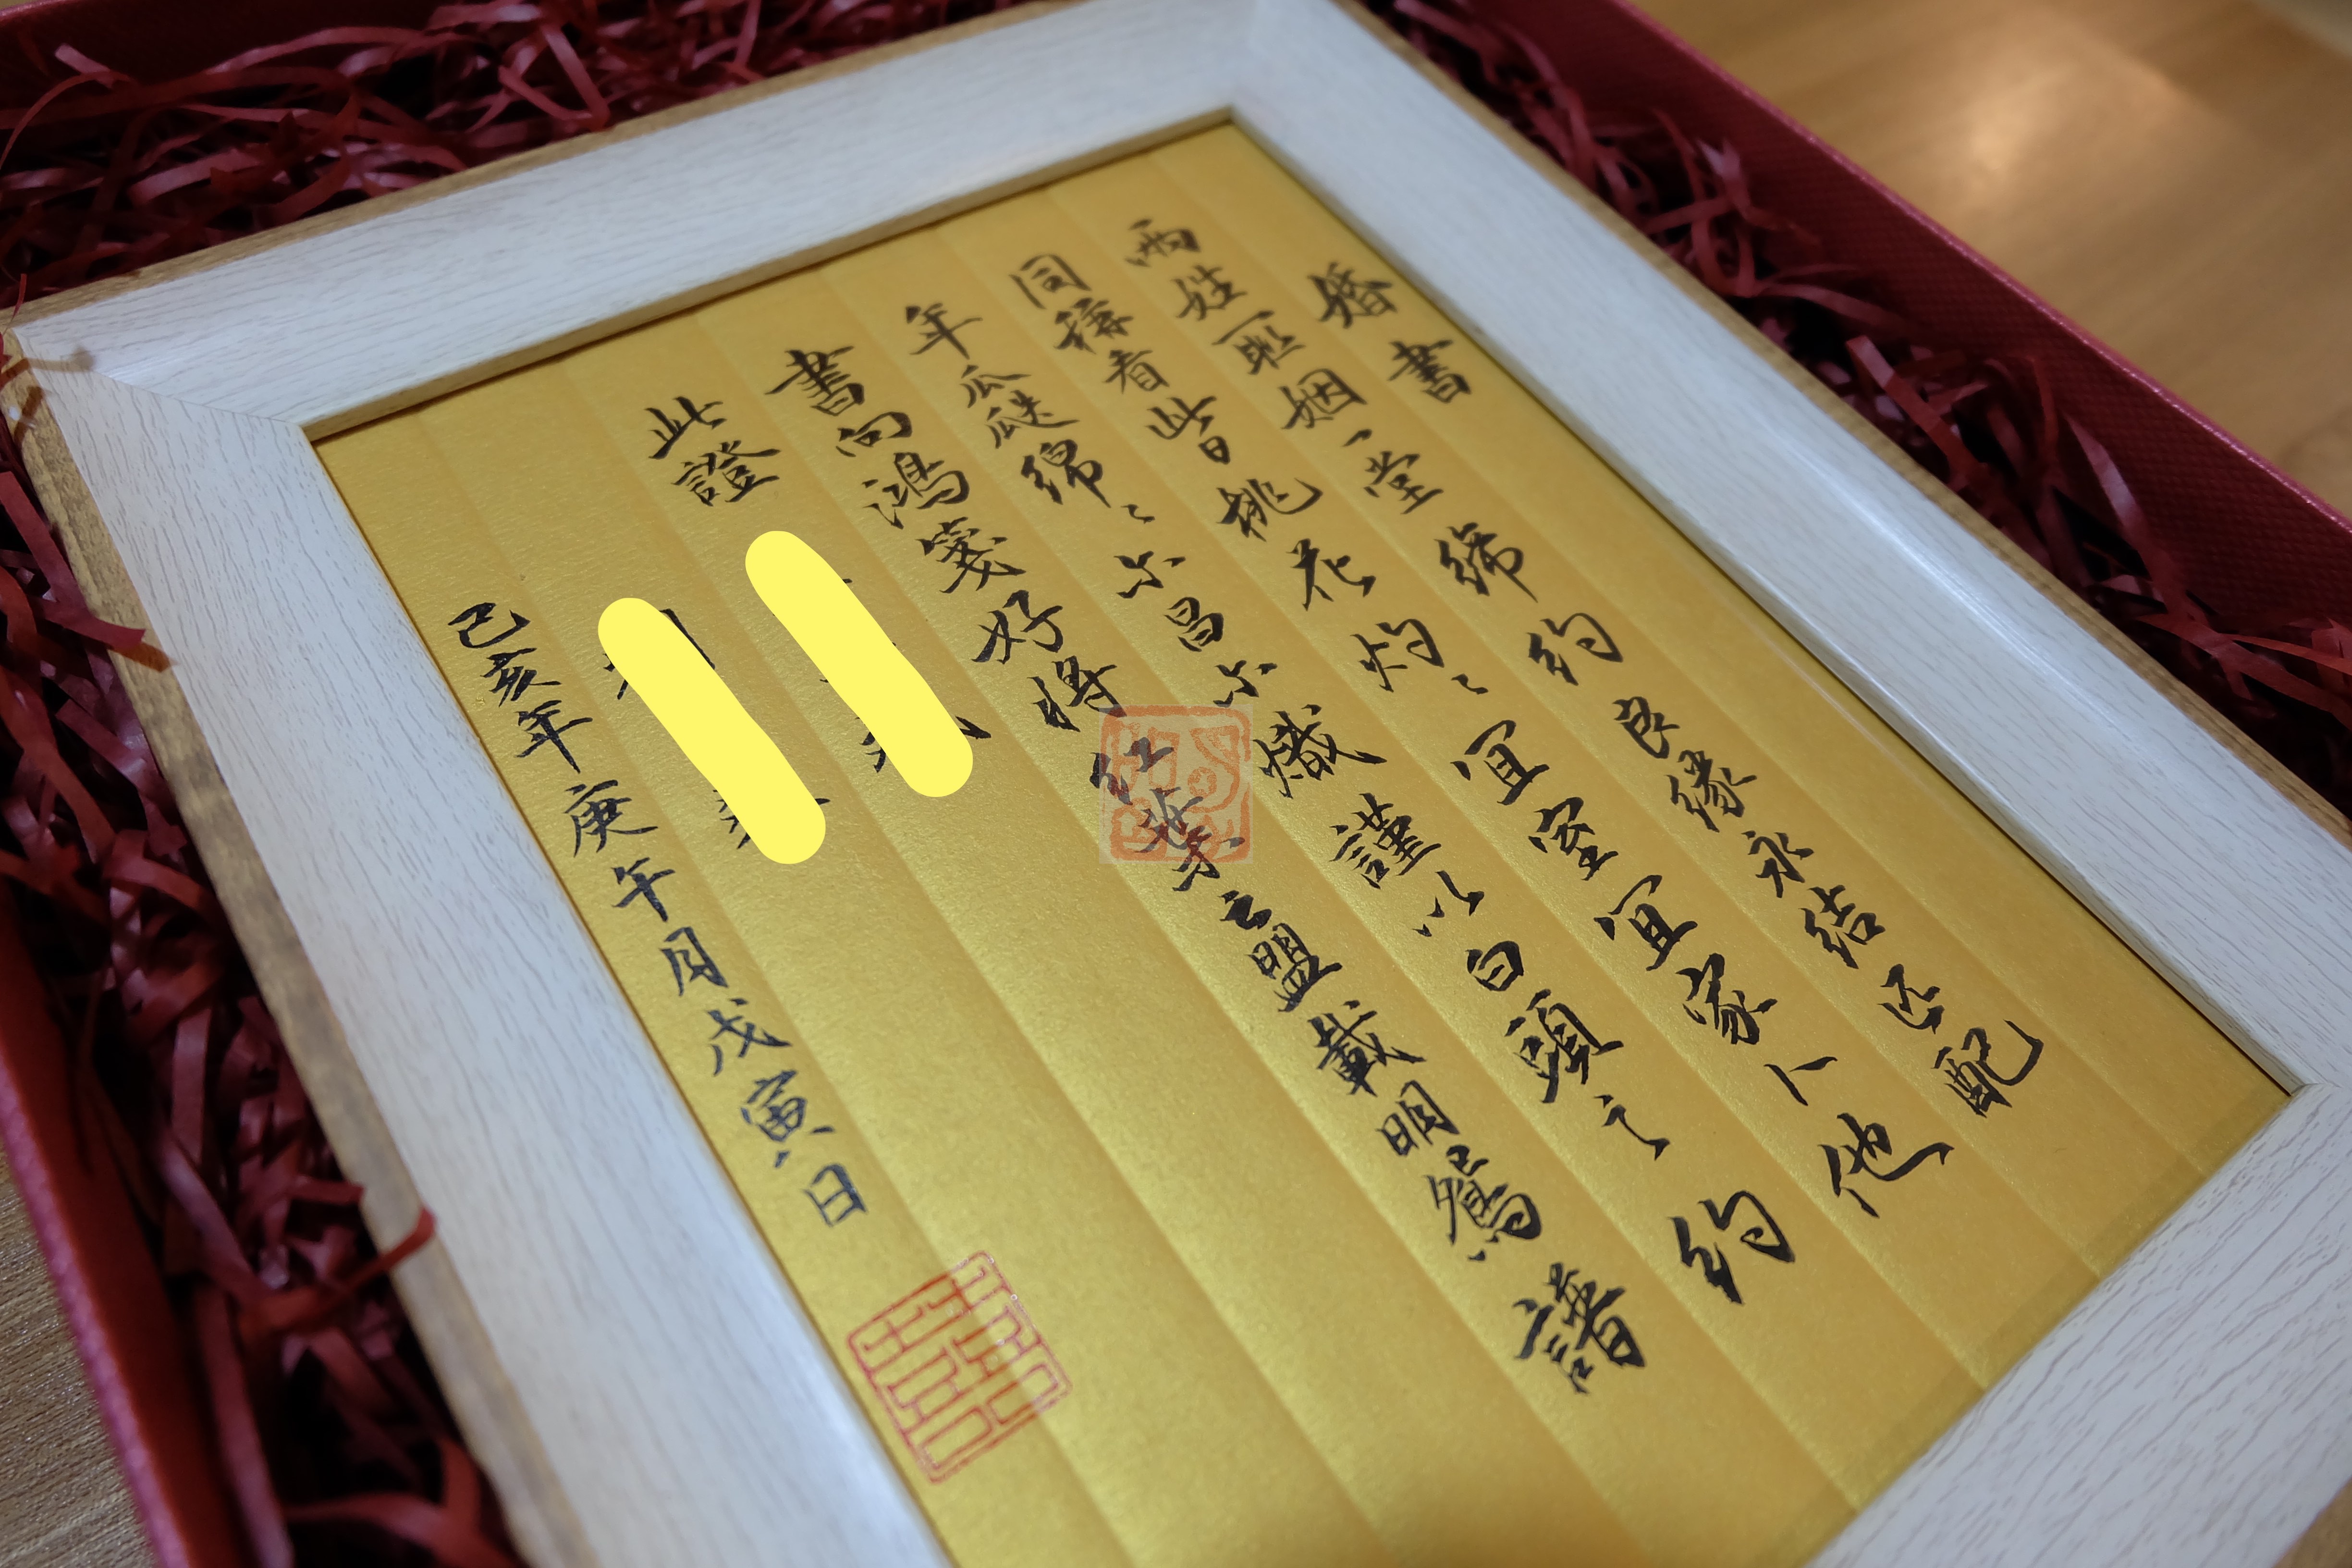 婚書
兩姓聯姻一堂締約良緣永結匹配
同稱看此日桃花灼〻宜室宜家卜他
年瓜瓞綿〻尔昌尔熾謹以白頭之約
書向鴻箋好將紅葉之盟載明鴛譜
此證
己亥年庚午月戊寅日
囍